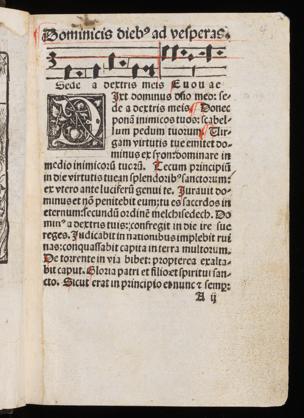 Dominicis dieb⁹ ad vesperas.
Sede a dextris meis E u o u a e
Dixt dominus dño meo: se-
de a dextris meis Donec
ponā inimicos tuos: scabel-
lum pedum tuorum Uir-
gam virtutis tue emitet do-
minus ex syon: dominare in
medio inimicorū tuorū. Tecum principiū
in die virtutis tue in splendorib⁹ sanctorum:
ex vtero ante luciferū genui te. Jurauit do-
minus et nō penitebit eum: tu es sacerdos in
eternum: secundū ordinē melchisedech. Do-
min⁹ a dextris tuis: confregit in die ire sue
reges. Judicabit in nationibus implebit rui
nas: conquassabit capita in terra multorum.
De torrente in via bibet: propterea exalta-
bit caput. Gloria patri et filio et spiritui san-
cto. Sicut erat in principio et nunc ⁊ semp:
A ij